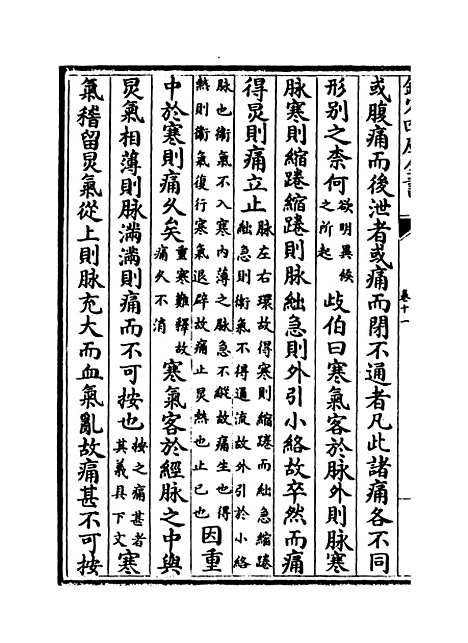 欽定四庫全書
卷十一
或腹痛而後泄者或痛而閉不通者凡此諸痛各不同
形别之奈何欲明異候之所起歧伯曰寒氣客於脉外則脉寒
脉寒則縮踡縮踡則脉絀急則外引小絡故卒然而痛
得炅則痛立止脉左右環故得寒則縮踡而絀急縮踡絀急則衛氣不得通流故外引於小絡
脉也衛氣不入寒内薄之脉急不縱故痛生也得熱則衛氣復行寒氣退辟故痛止炅熱也止已也因重
中於寒則痛久矣重寒難釋故痛久不消寒氣客於經脉之中與
炅氣相薄則脉滿滿則痛而不可按也按之痛甚者其義具下文寒
氣稽留炅氣從上則脉充大而血氣亂故痛甚不可按